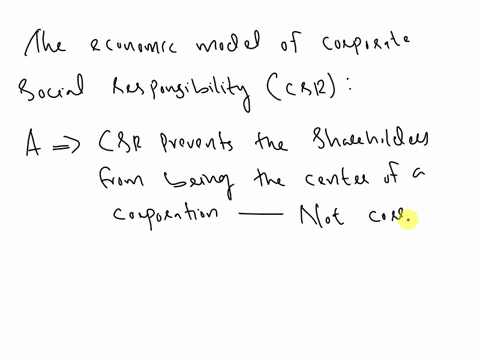 The economic model of corporate
Social Responsibility (CSR):
A ⇒ CSR prevents the Shareholders
from being the center of a
corporation — Not corr